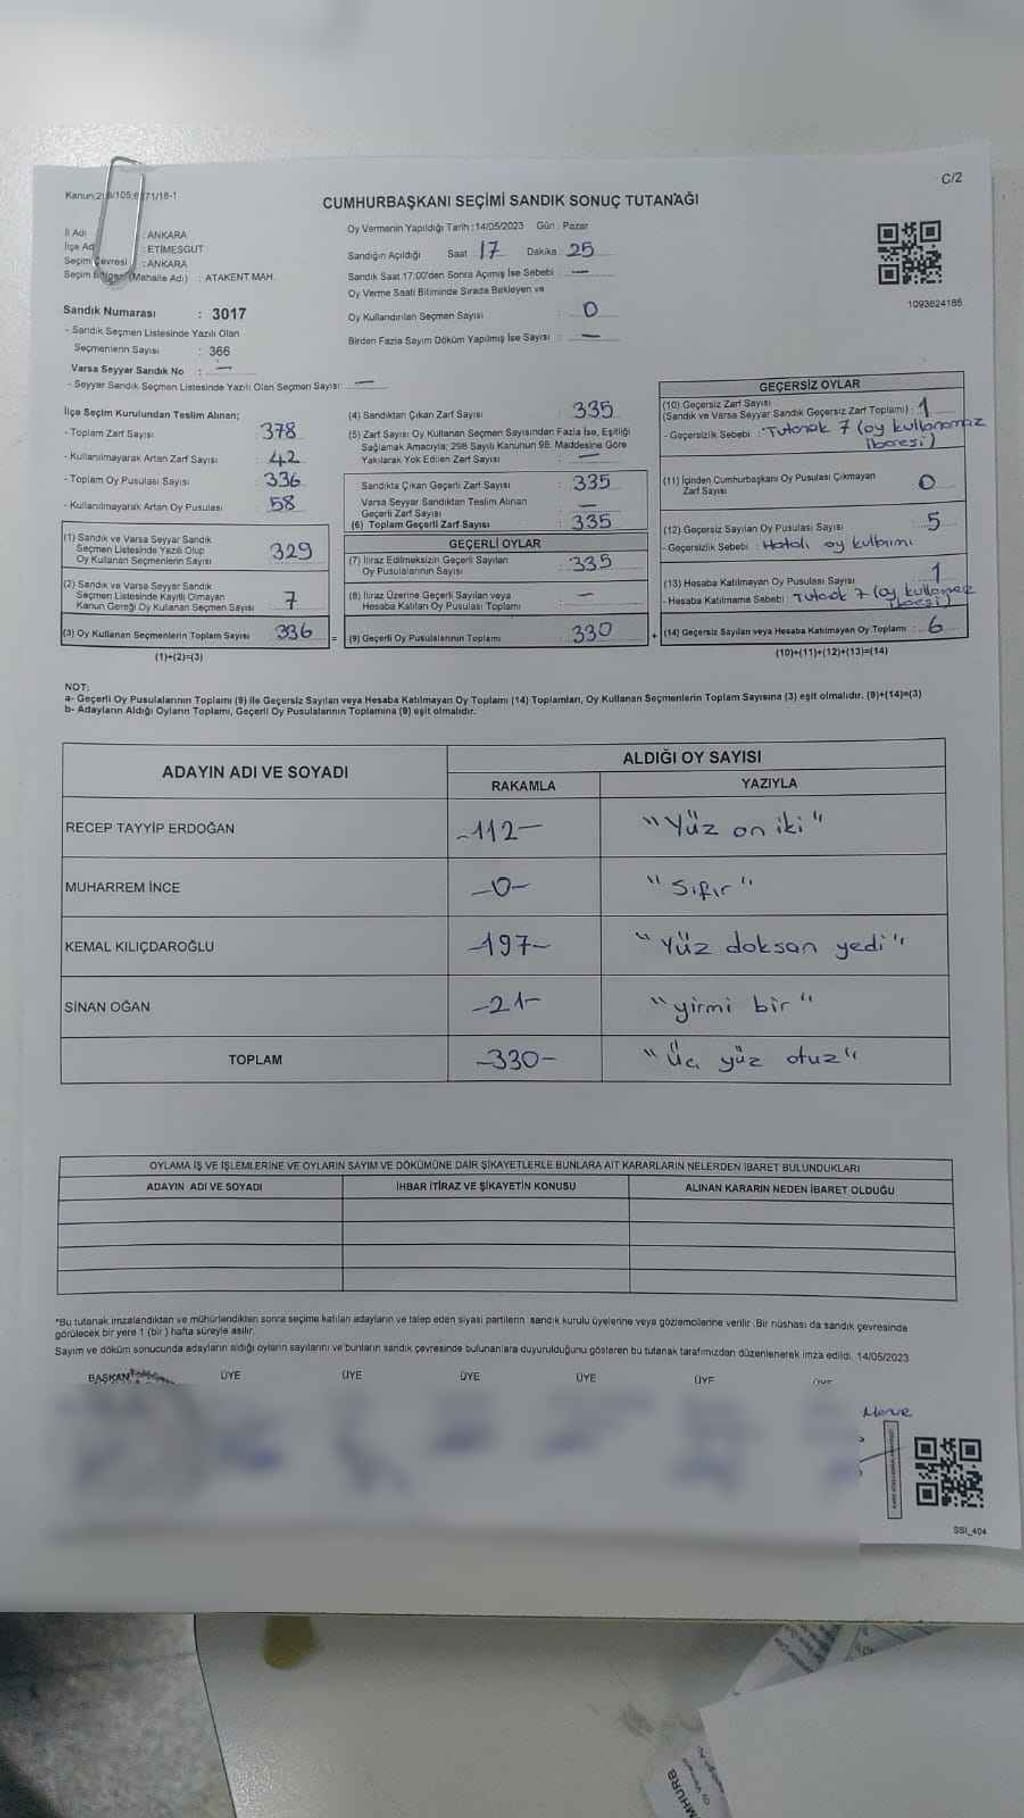 C/2
CUMHURBAŞKANI SEÇİMİ SANDIK SONUÇ TUTANAĞI
İl Adı : ANKARA
: ETİMESGUT
: ANKARA
(Mahalle Adı) : ATAKENT MAH.
Oy Vermenin Yapıldığı Tarih : 14/05/2023 Gün : Pazar
Sandığın Açıldığı Saat 17 Dakika 25
Sandık Saat 17:00'den Sonra Açımış İse Sebebi : —
Oy Verme Saati Bitiminde Sırada Bekleyen ve
Oy Kullandırılan Seçmen Sayısı : 0
Birden Fazla Sayım Döküm Yapılmış İse Sayısı : —
1093624186
Sandık Numarası : 3017
- Sandık Seçmen Listesinde Yazılı Olan
Seçmenlerin Sayısı : 366
Varsa Seyyar Sandık No : —
- Seyyar Sandık Seçmen Listesinde Yazılı Olan Seçmen Sayısı: —
İlçe Seçim Kurulundan Teslim Alınan;
- Toplam Zarf Sayısı : 378
- Kullanılmayarak Artan Zarf Sayısı : 42
- Toplam Oy Pusulası Sayısı : 336
- Kullanılmayarak Artan Oy Pusulası : 58
(1) Sandık ve Varsa Seyyar Sandık
Seçmen Listesinde Yazılı Olup
Oy Kullanan Seçmenlerin Sayısı 329
(2) Sandık ve Varsa Seyyar Sandık
Seçmen Listesinde Kayıtlı Olmayan
Kanun Gereği Oy Kullanan Seçmen Sayısı 7
(3) Oy Kullanan Seçmenlerin Toplam Sayısı 336
(1)+(2)=(3)
(4) Sandıktan Çıkan Zarf Sayısı : 335
(5) Zarf Sayısı Oy Kullanan Seçmen Sayısından Fazla İse, Eşitliği
Sağlamak Amacıyla; 298 Sayılı Kanunun 98. Maddesine Göre
Yakılarak Yok Edilen Zarf Sayısı : —
Sandıkta Çıkan Geçerli Zarf Sayısı : 335
Varsa Seyyar Sandıktan Teslim Alınan
Geçerli Zarf Sayısı : —
(6) Toplam Geçerli Zarf Sayısı : 335
GEÇERLİ OYLAR
(7) İtiraz Edilmeksizin Geçerli Sayılan
Oy Pusulalarının Sayısı : 335
(8) İtiraz Üzerine Geçerli Sayılan veya
Hesaba Katılan Oy Pusulası Toplamı : —
= (9) Geçerli Oy Pusulalarının Toplamı : 330 +
GEÇERSİZ OYLAR
(10) Geçersiz Zarf Sayısı
(Sandık ve Varsa Seyyar Sandık Geçersiz Zarf Toplamı) : 1
- Geçersizlik Sebebi : Tutanak 7 (oy kullanamaz
ibaresi)
(11) İçinden Cumhurbaşkanı Oy Pusulası Çıkmayan
Zarf Sayısı : 0
(12) Geçersiz Sayılan Oy Pusulası Sayısı : 5
- Geçersizlik Sebebi : Hatalı oy kullanımı
(13) Hesaba Katılmayan Oy Pusulası Sayısı : 1
- Hesaba Katılmama Sebebi : 7 (oy
(14) Geçersiz Sayılan veya Hesaba Katılmayan Oy Toplamı : 6
(10)+(11)+(12)+(13)=(14)
NOT:
a- Geçerli Oy Pusulalarının Toplamı (9) ile Geçersiz Sayılan veya Hesaba Katılmayan Oy Toplamı (14) Toplamları, Oy Kullanan Seçmenlerin Toplam Sayısına (3) eşit olmalıdır. (9)+(14)=(3)
b- Adayların Aldığı Oyların Toplamı, Geçerli Oy Pusulalarının Toplamına (9) eşit olmalıdır.
ADAYIN ADI VE SOYADI ALDIĞI OY SAYISI
RAKAMLA YAZIYLA
RECEP TAYYİP ERDOĞAN -112- "Yüz on iki"
MUHARREM İNCE -0- "Sıfır"
KEMAL KILIÇDAROĞLU -197- "Yüz doksan yedi"
SİNAN OĞAN -21- "yirmi bir"
TOPLAM -330- "Üç yüz otuz"
OYLAMA İŞ VE İŞLEMLERİNE VE OYLARIN SAYIM VE DÖKÜMÜNE DAİR ŞİKAYETLERLE BUNLARA AİT KARARLARIN NELERDEN İBARET BULUNDUKLARI
ADAYIN ADI VE SOYADI İHBAR İTİRAZ VE ŞİKAYETİN KONUSU ALINAN KARARIN NEDEN İBARET OLDUĞU
*Bu tutanak imzalandıktan ve mühürlendikten sonra seçime katılan adayların ve talep eden siyasi partilerin sandık kurulu üyelerine veya gözlemcilerine verilir. Bir nüshası da sandık çevresinde
görülecek bir yere 1 (bir) hafta süreyle asılır.
Sayım ve döküm sonucunda adayların aldığı oyların sayılarını ve bunların sandık çevresinde bulunanlara duyurulduğunu gösteren bu tutanak tarafımızdan düzenlenerek imza edildi. 14/05/2023
BAŞKAN ÜYE ÜYE ÜYE ÜYE ÜYE
SSI_404